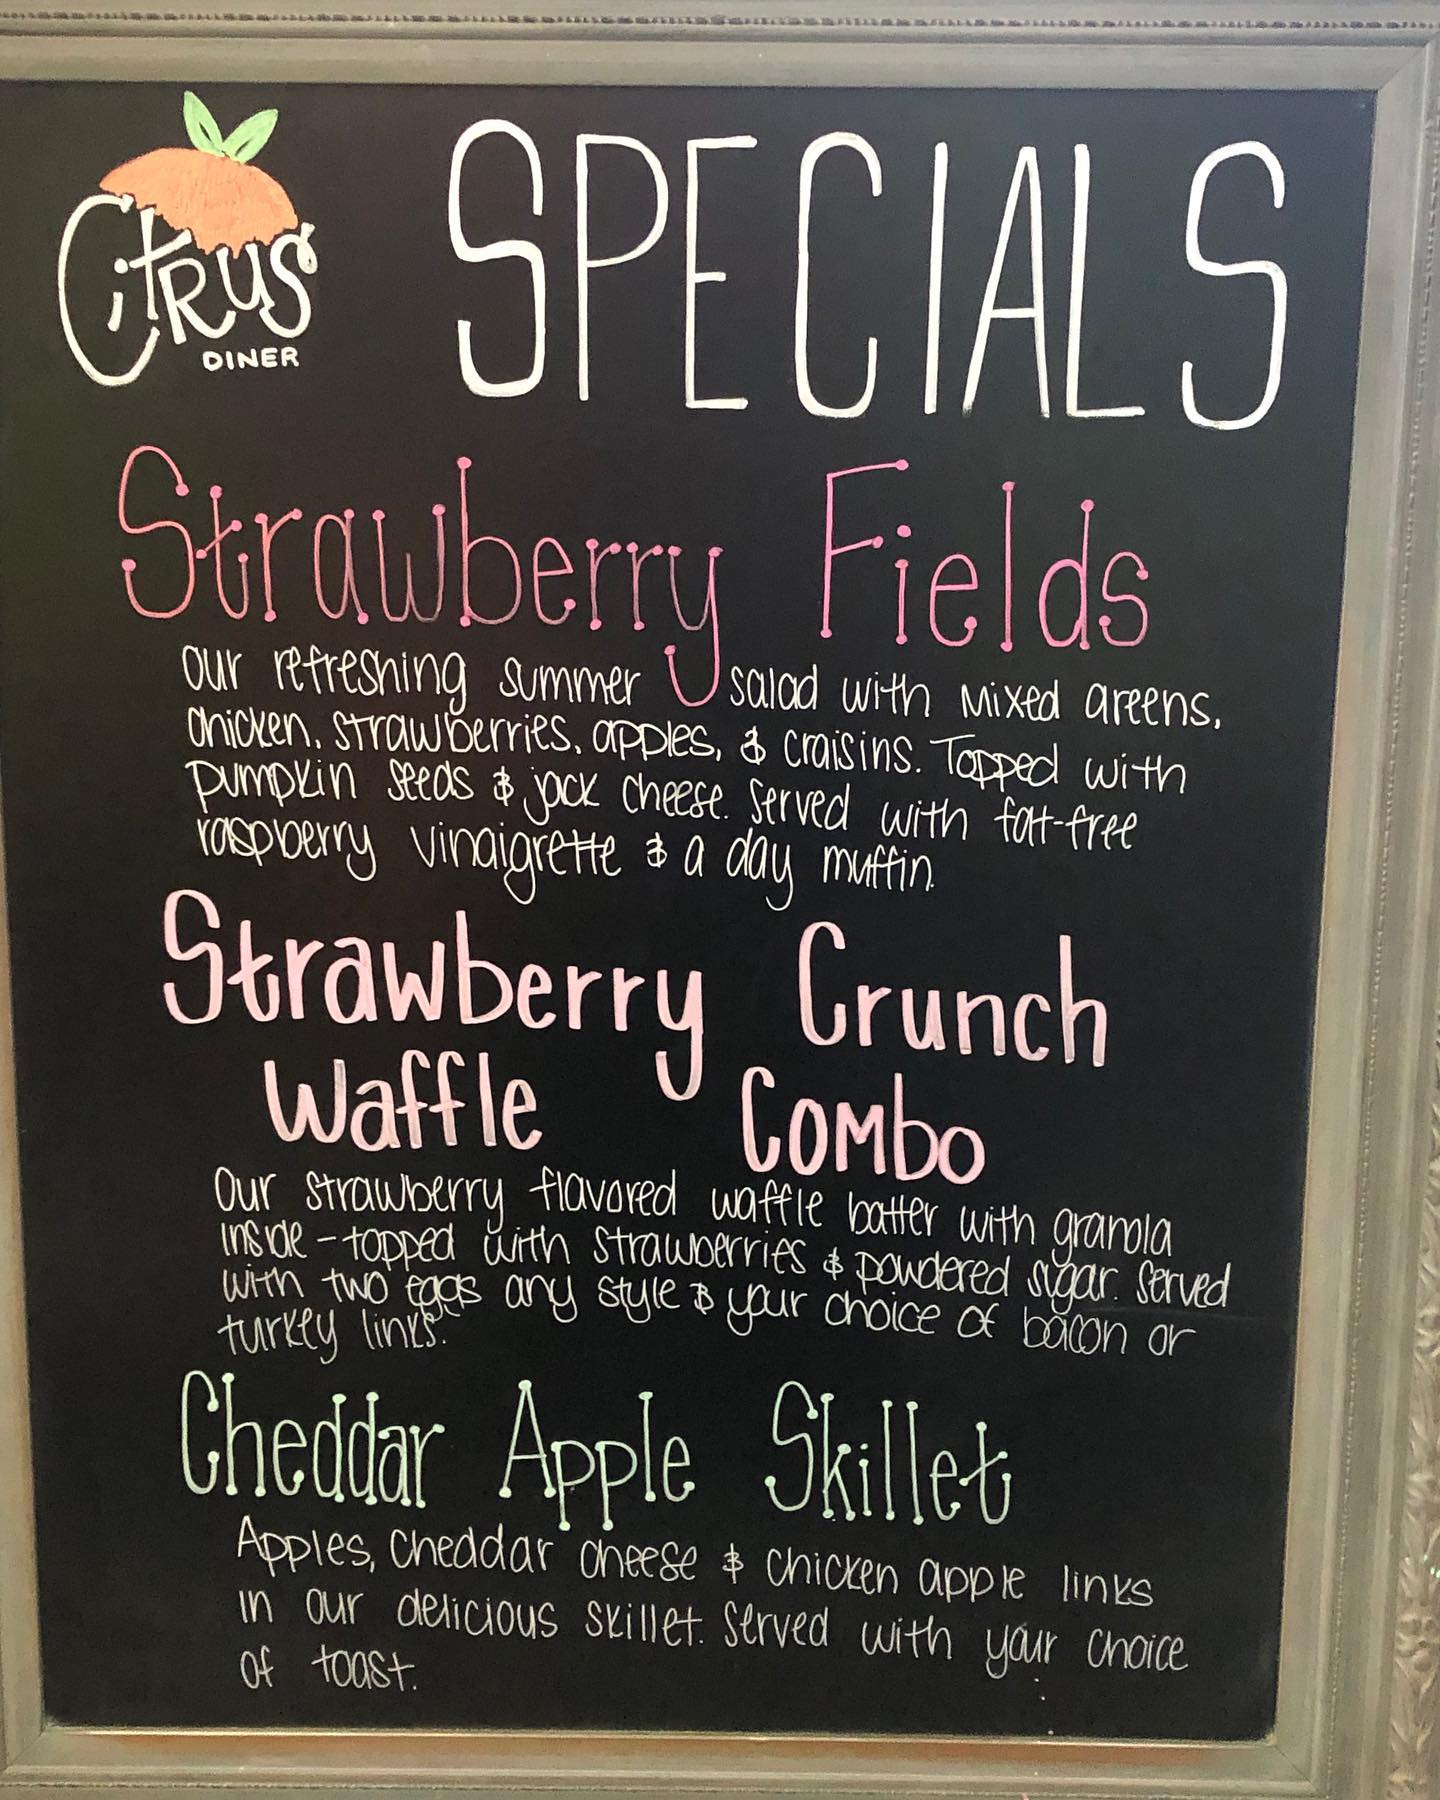 Citrus
DINER
SPECIALS
Strawberry Fields
our refreshing summer salad with mixed greens,
chicken, strawberries, apples, & craisins. Topped with
pumpkin seeds & jack cheese. Served with fatt-free
raspberry vinaigrette & a day muffin.
Strawberry Crunch
Waffle Combo
Our strawberry flavored waffle batter with granola
inside - topped with strawberries & powdered sugar. Served
with two eggs any style & your choice of bacon or
turkey links.
Cheddar Apple Skillet
Apples, cheddar cheese & chicken apple links
in our delicious skillet. Served with your choice
of toast.